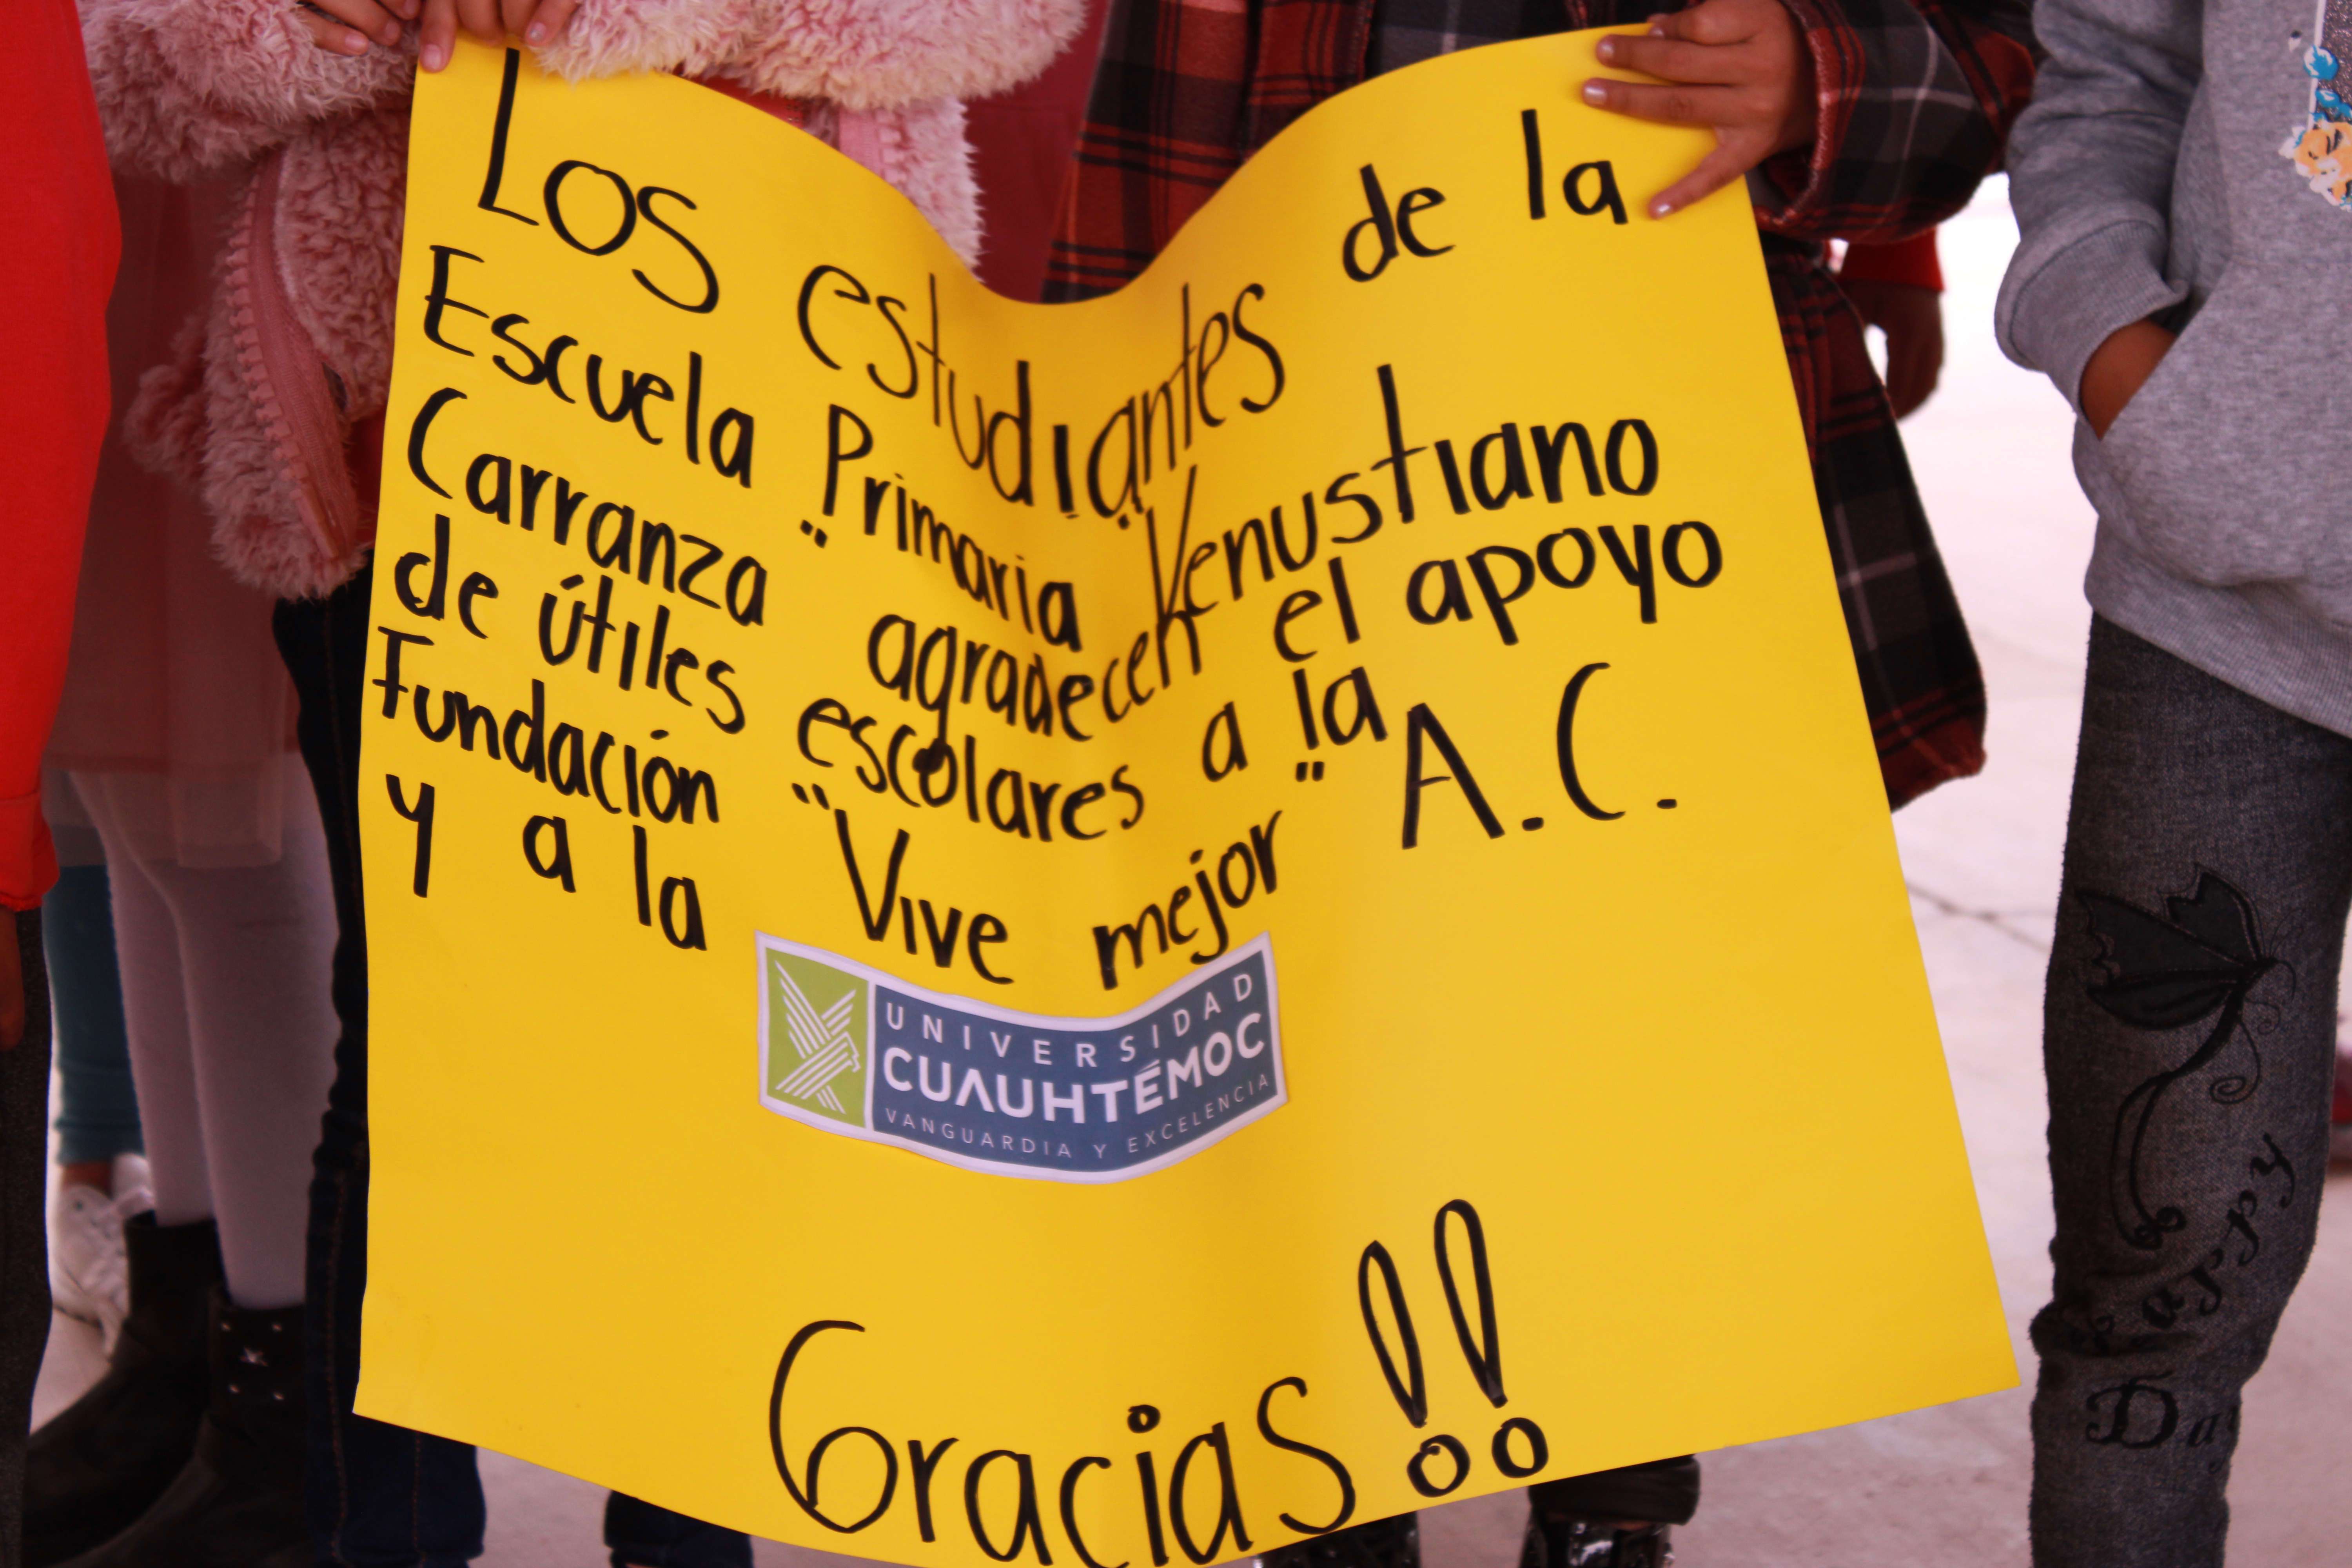 Los estudiantes de la
Escuela Primaria "Venustiano
Carranza" agradecen el apoyo
de útiles escolares a la
Fundación "Vive mejor" A.C.
y a la
UNIVERSIDAD
CUAUHTÉMOC
VANGUARDIA Y EXCELENCIA
Gracias!!
Happy
Day